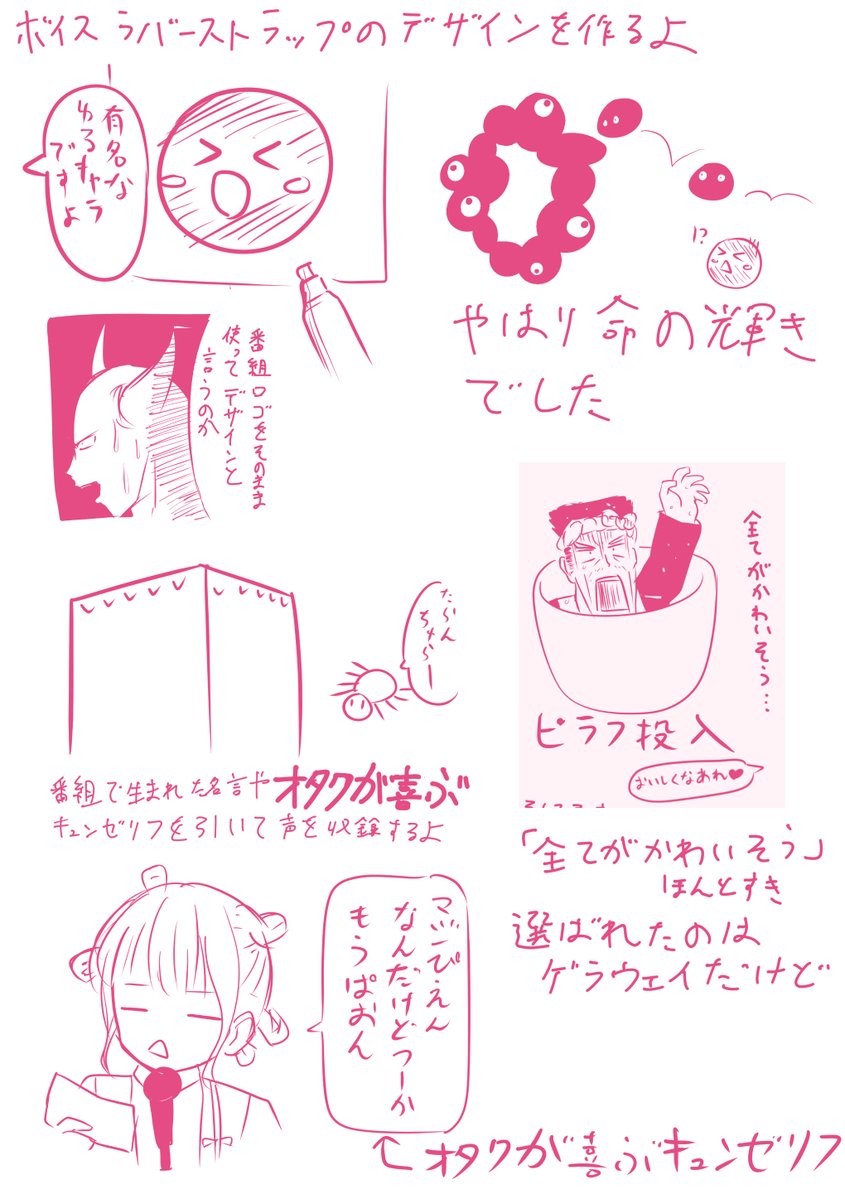 ボイス ラバーストラップのデザインを作るよ
有名な
ゆるキャラ
ですよ
!?
やはり命の輝き
でした
番組ロゴをそのまま
使ってデザインと
言うのか
全てがかわいそう…
ピラフ投入
おいしくなあれ♥
たらん
ちゅらー
番組で生まれた名言やオタクが喜ぶ
キュンゼリフを引いて声を収録するよ
「全てがかわいそう」
ほんとすき
選ばれたのは
ゲラウェイだけど
マジぴえん
なんだけどつーか
もうぱおん
←オタクが喜ぶキュンゼリフ